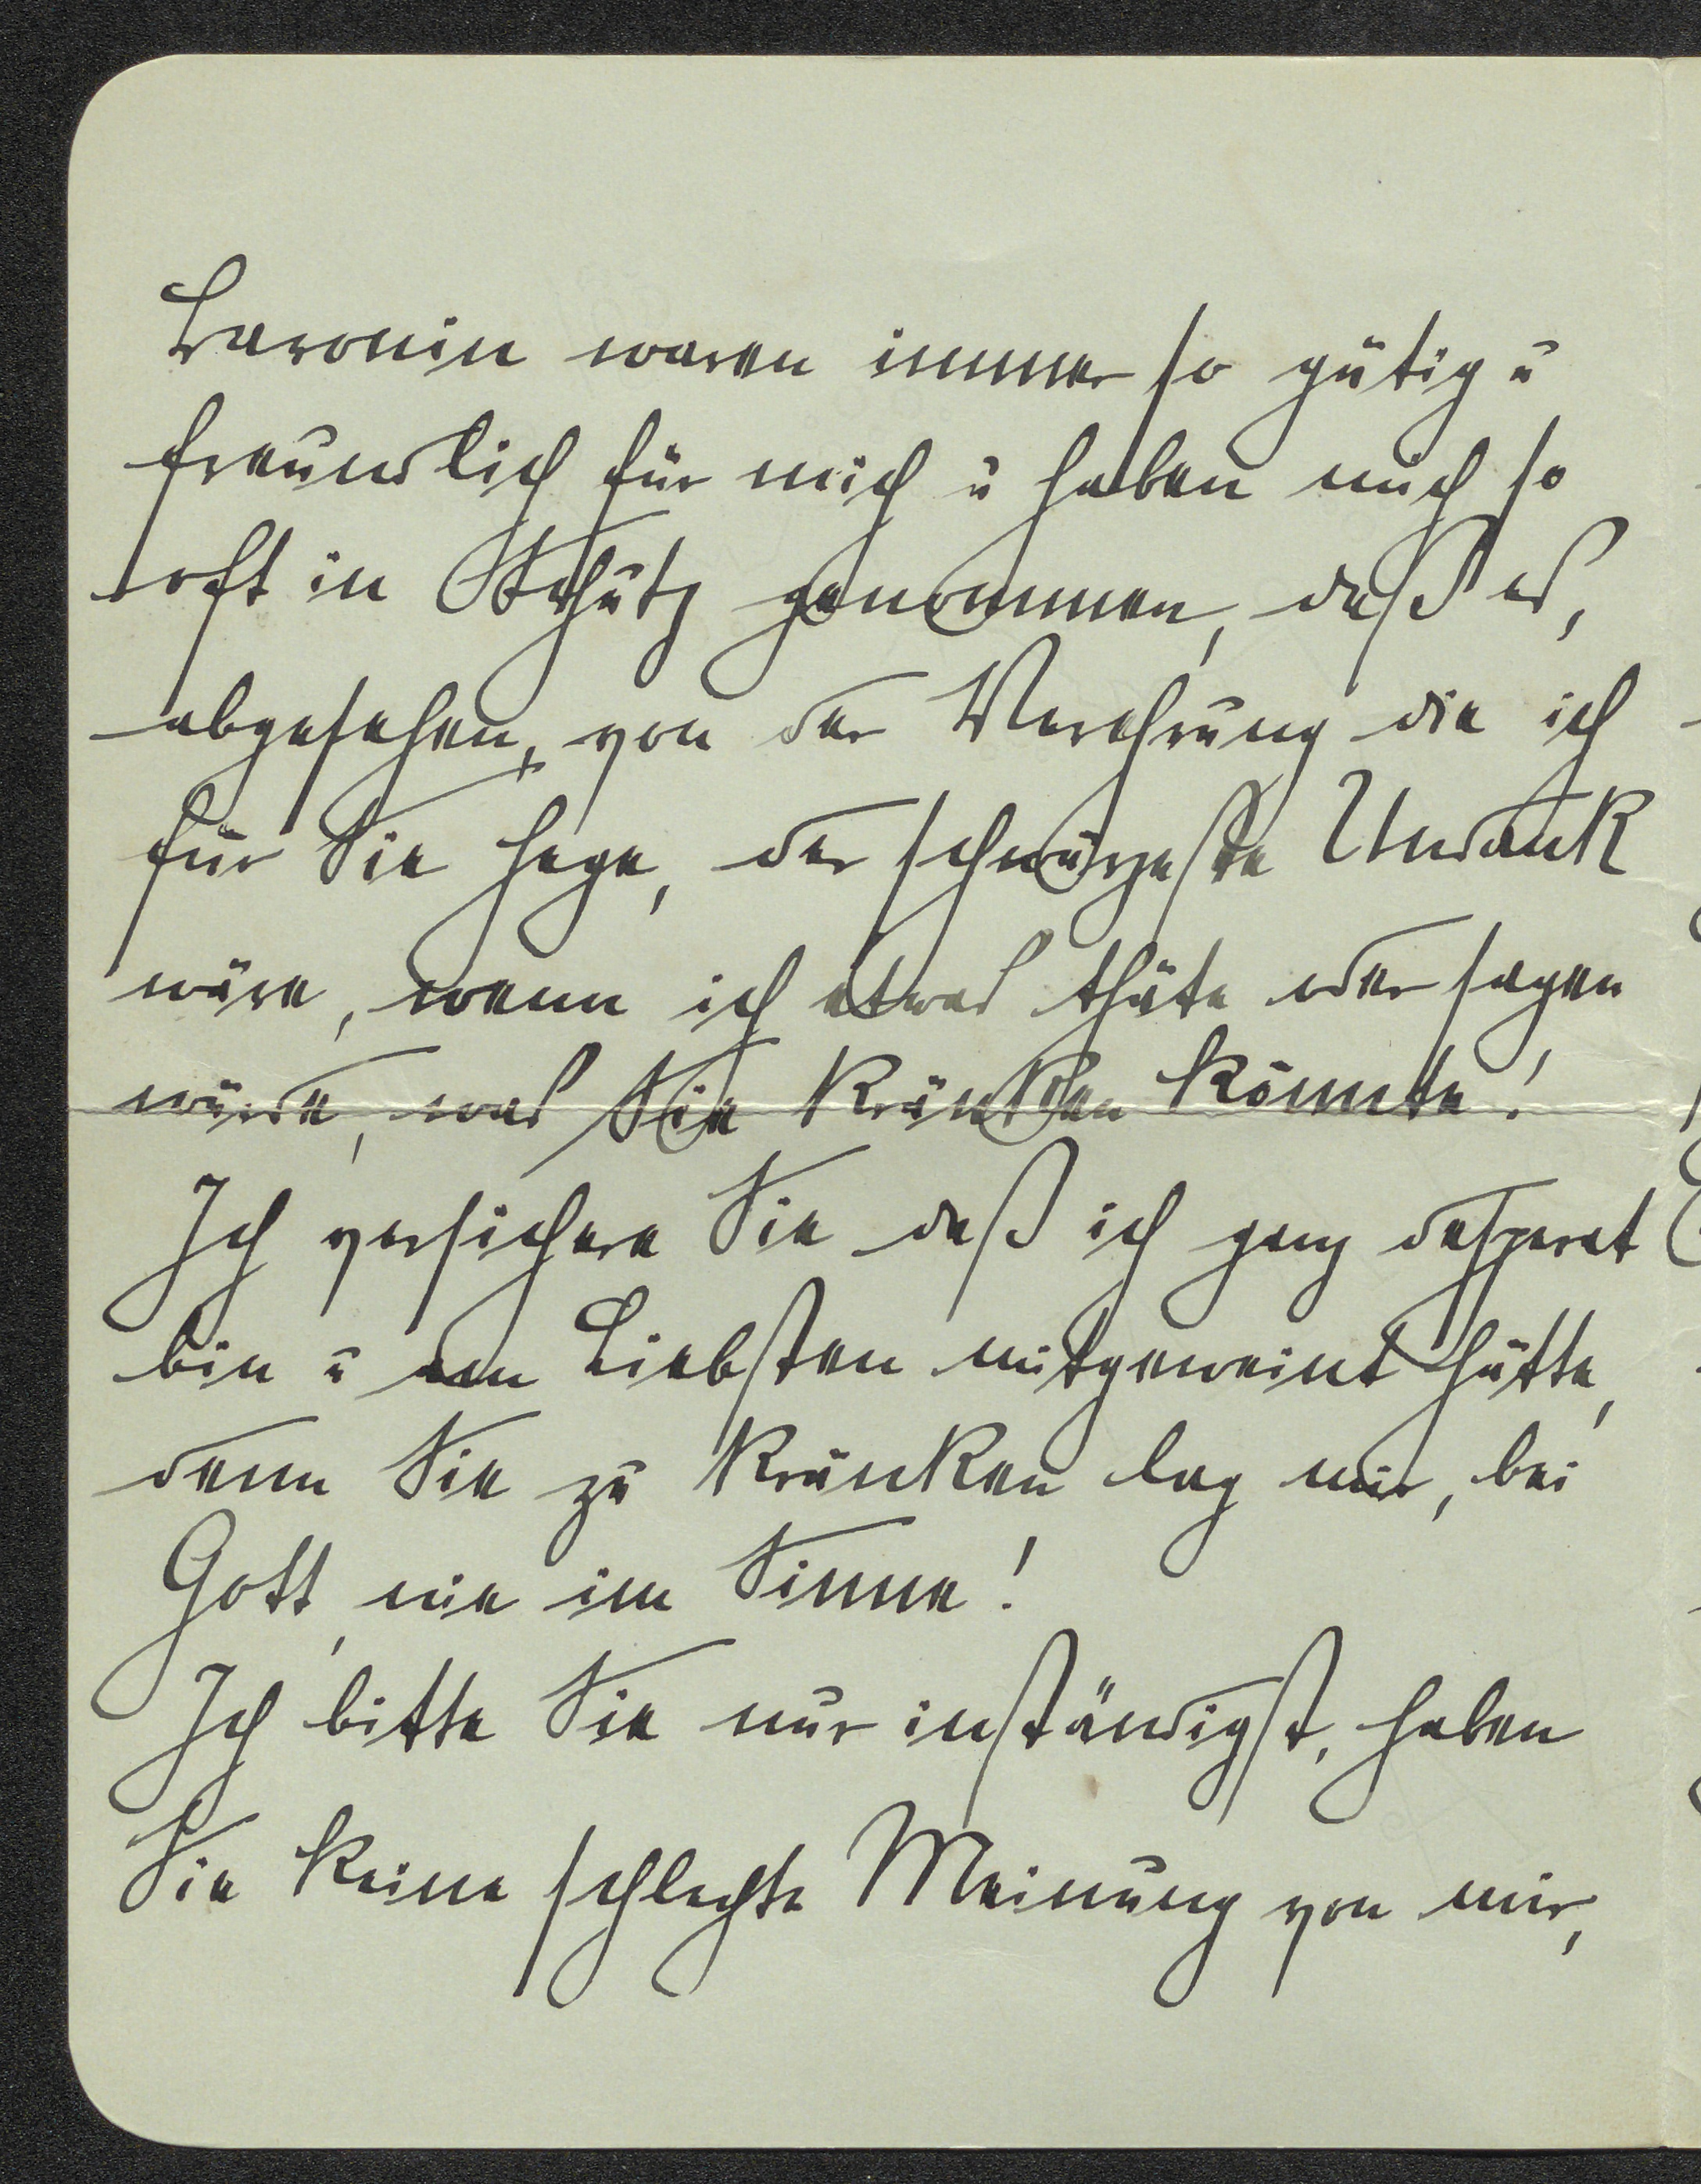 Baronin waren immer so gütig u
freundlich für mich u haben mich so
oft in Schutz genommen, daß es,
abgesehen, von der Verehrung die ich
für Sie hege, der schwärzeste Undank
wäre, wenn ich etwas thäte oder sagen
würde, was Sie kränken könnte!
Ich versichere Sie daß ich ganz desperat
bin u am Liebsten mitgeweint hätte,
denn Sie zu kränken lag mir, bei
Gott, nie im Sinne!
Ich bitte Sie nur inständigst, haben
Sie keine schlechte Meinung von mir,